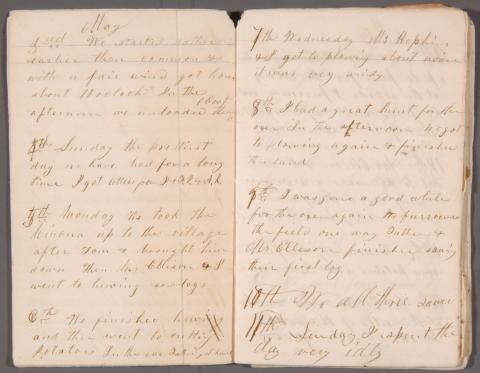 May
3rd We started rather
earlier than common &
with a fair wind got home
about Noclock In the
afternoon we unloaded the
boat
4th Sunday the prettiest
day we have had for a long
time I got letter from
5th Monday We took the
Winona up to the village
after Tom & brought him
down Then Mr Ellison & I
went to hewing sawlogs
6th We finished hewing
and then went to cutting
potatoes In the eve
7th Wednesday Mr Hopkin
& I got to plowing about noon
it was very windy
8th I had a great hunt for the
oxen In the afternoon We got
to plowing again & finished
the land
9th I was gone a good while
for the oxen again We furrowed
the field one way Father &
Mr Ellison finished sawing
their first log
10th We all three
11th Sunday I spent the
day very idly